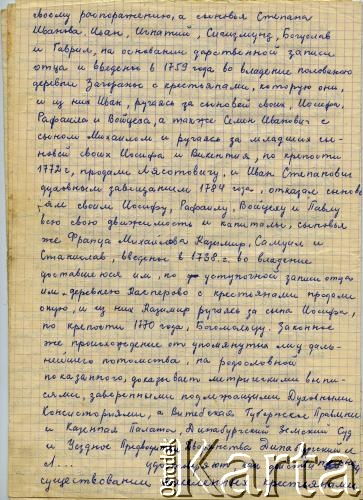 своему распоряжению, а сыновья Степана
Иванова Иван, Игнатий, Сигизмунд, Богуслав
и Гавриил, на основании дарственной записи
отца и введены в 1759 года во владение половиною
деревни Загораны с крестьянами, которую они,
и из них Иван, ручаясь за сыновей своих, Иосифа,
Рафаила и Войцеха, а также Семен Иванович с
сыном Михаилом и ручаясь за младших сы-
новей своих Иосифа и Викентия, по крепости
1772 г, продали Лясотовичу, и Иван Степанович
духовным завещанием 1784 года, отказал сыновь
ям своим Иосифу, Рафаилу, Войцеху и Павлу
всю свою движимость и капиталы, сыновья
же Франца Михайлова Казимир, Самуил и
Станислав, введены в 1738 г. во владение
доставшеюся им, по уступочной записи отца
им деревнею Касперово с крестьянами продали
оную, и из них Казимир ручаясь за сына Иосифа,
по крепости 1770 года, Богомольцу. Законное
же происхождение от упомянутых лиц даль-
нейшего потомства, на родословной
показанного, доказывает метрическими выпи-
сями, заверенными подлежащими Духовными
Консисториями, а Витебская Губернское Правлени
и Казенная Палата, Динабургский Земский Суд
и Уездное Предводит Дворянства Динабургский
удостоверяют
существовании населенных крестьянами
ośrodek
Karta